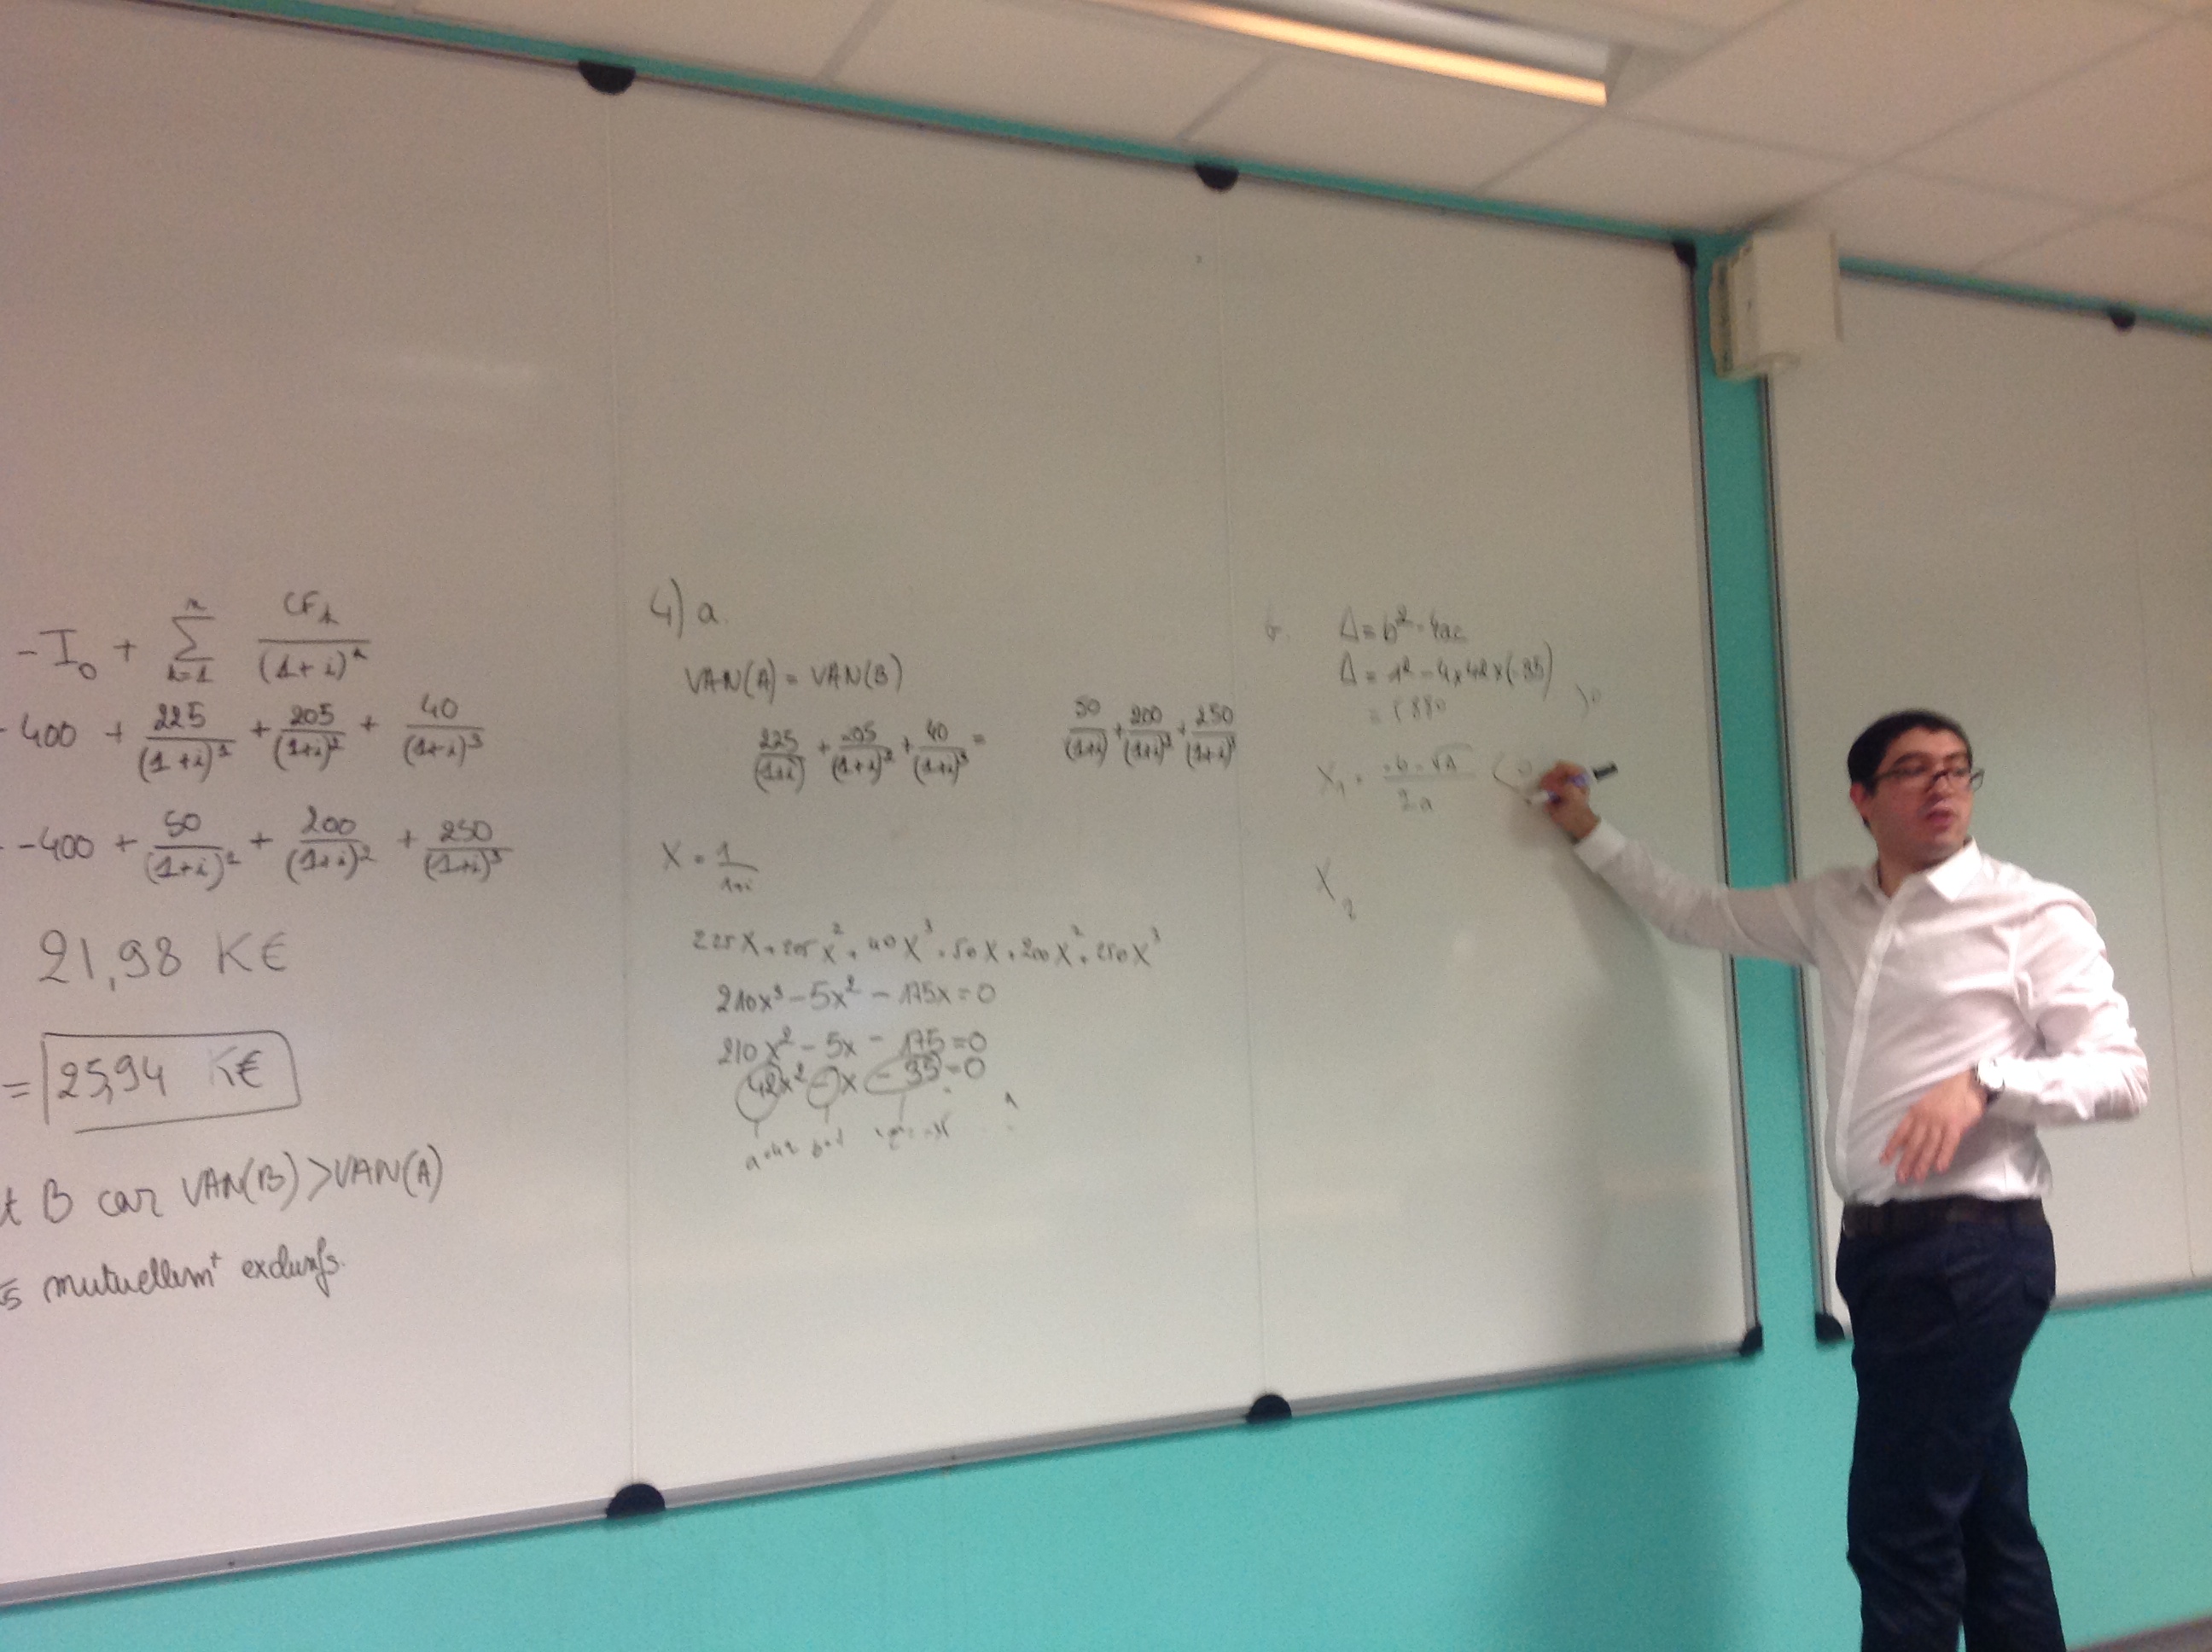 -I₀ + Σ (k=1 à n) CFk/(1+i)^k
-400 + 225/(1+i)¹ + 205/(1+i)² + 40/(1+i)³
-400 + 50/(1+i)¹ + 200/(1+i)² + 250/(1+i)³
21,98 K€
= 25,94 K€
t B car VAN(B) > VAN(A)
mutuellemᵗ exclusifs.
4) a.
VAN(A) = VAN(B)
225/(1+i) + 205/(1+i)² + 40/(1+i)³ = 50/(1+i) + 200/(1+i)² + 250/(1+i)³
X = 1/(1+i)
225X + 205X² + 40X³ = 50X + 200X² + 250X³
210x³ - 5x² - 175x = 0
210x² - 5x - 175 = 0
42x² - x - 35 = 0
a=42
b.
Δ = b² - 4ac
Δ = 1² - 4x42x(-35)
X₁ = (-b-√Δ)/2a
X₂